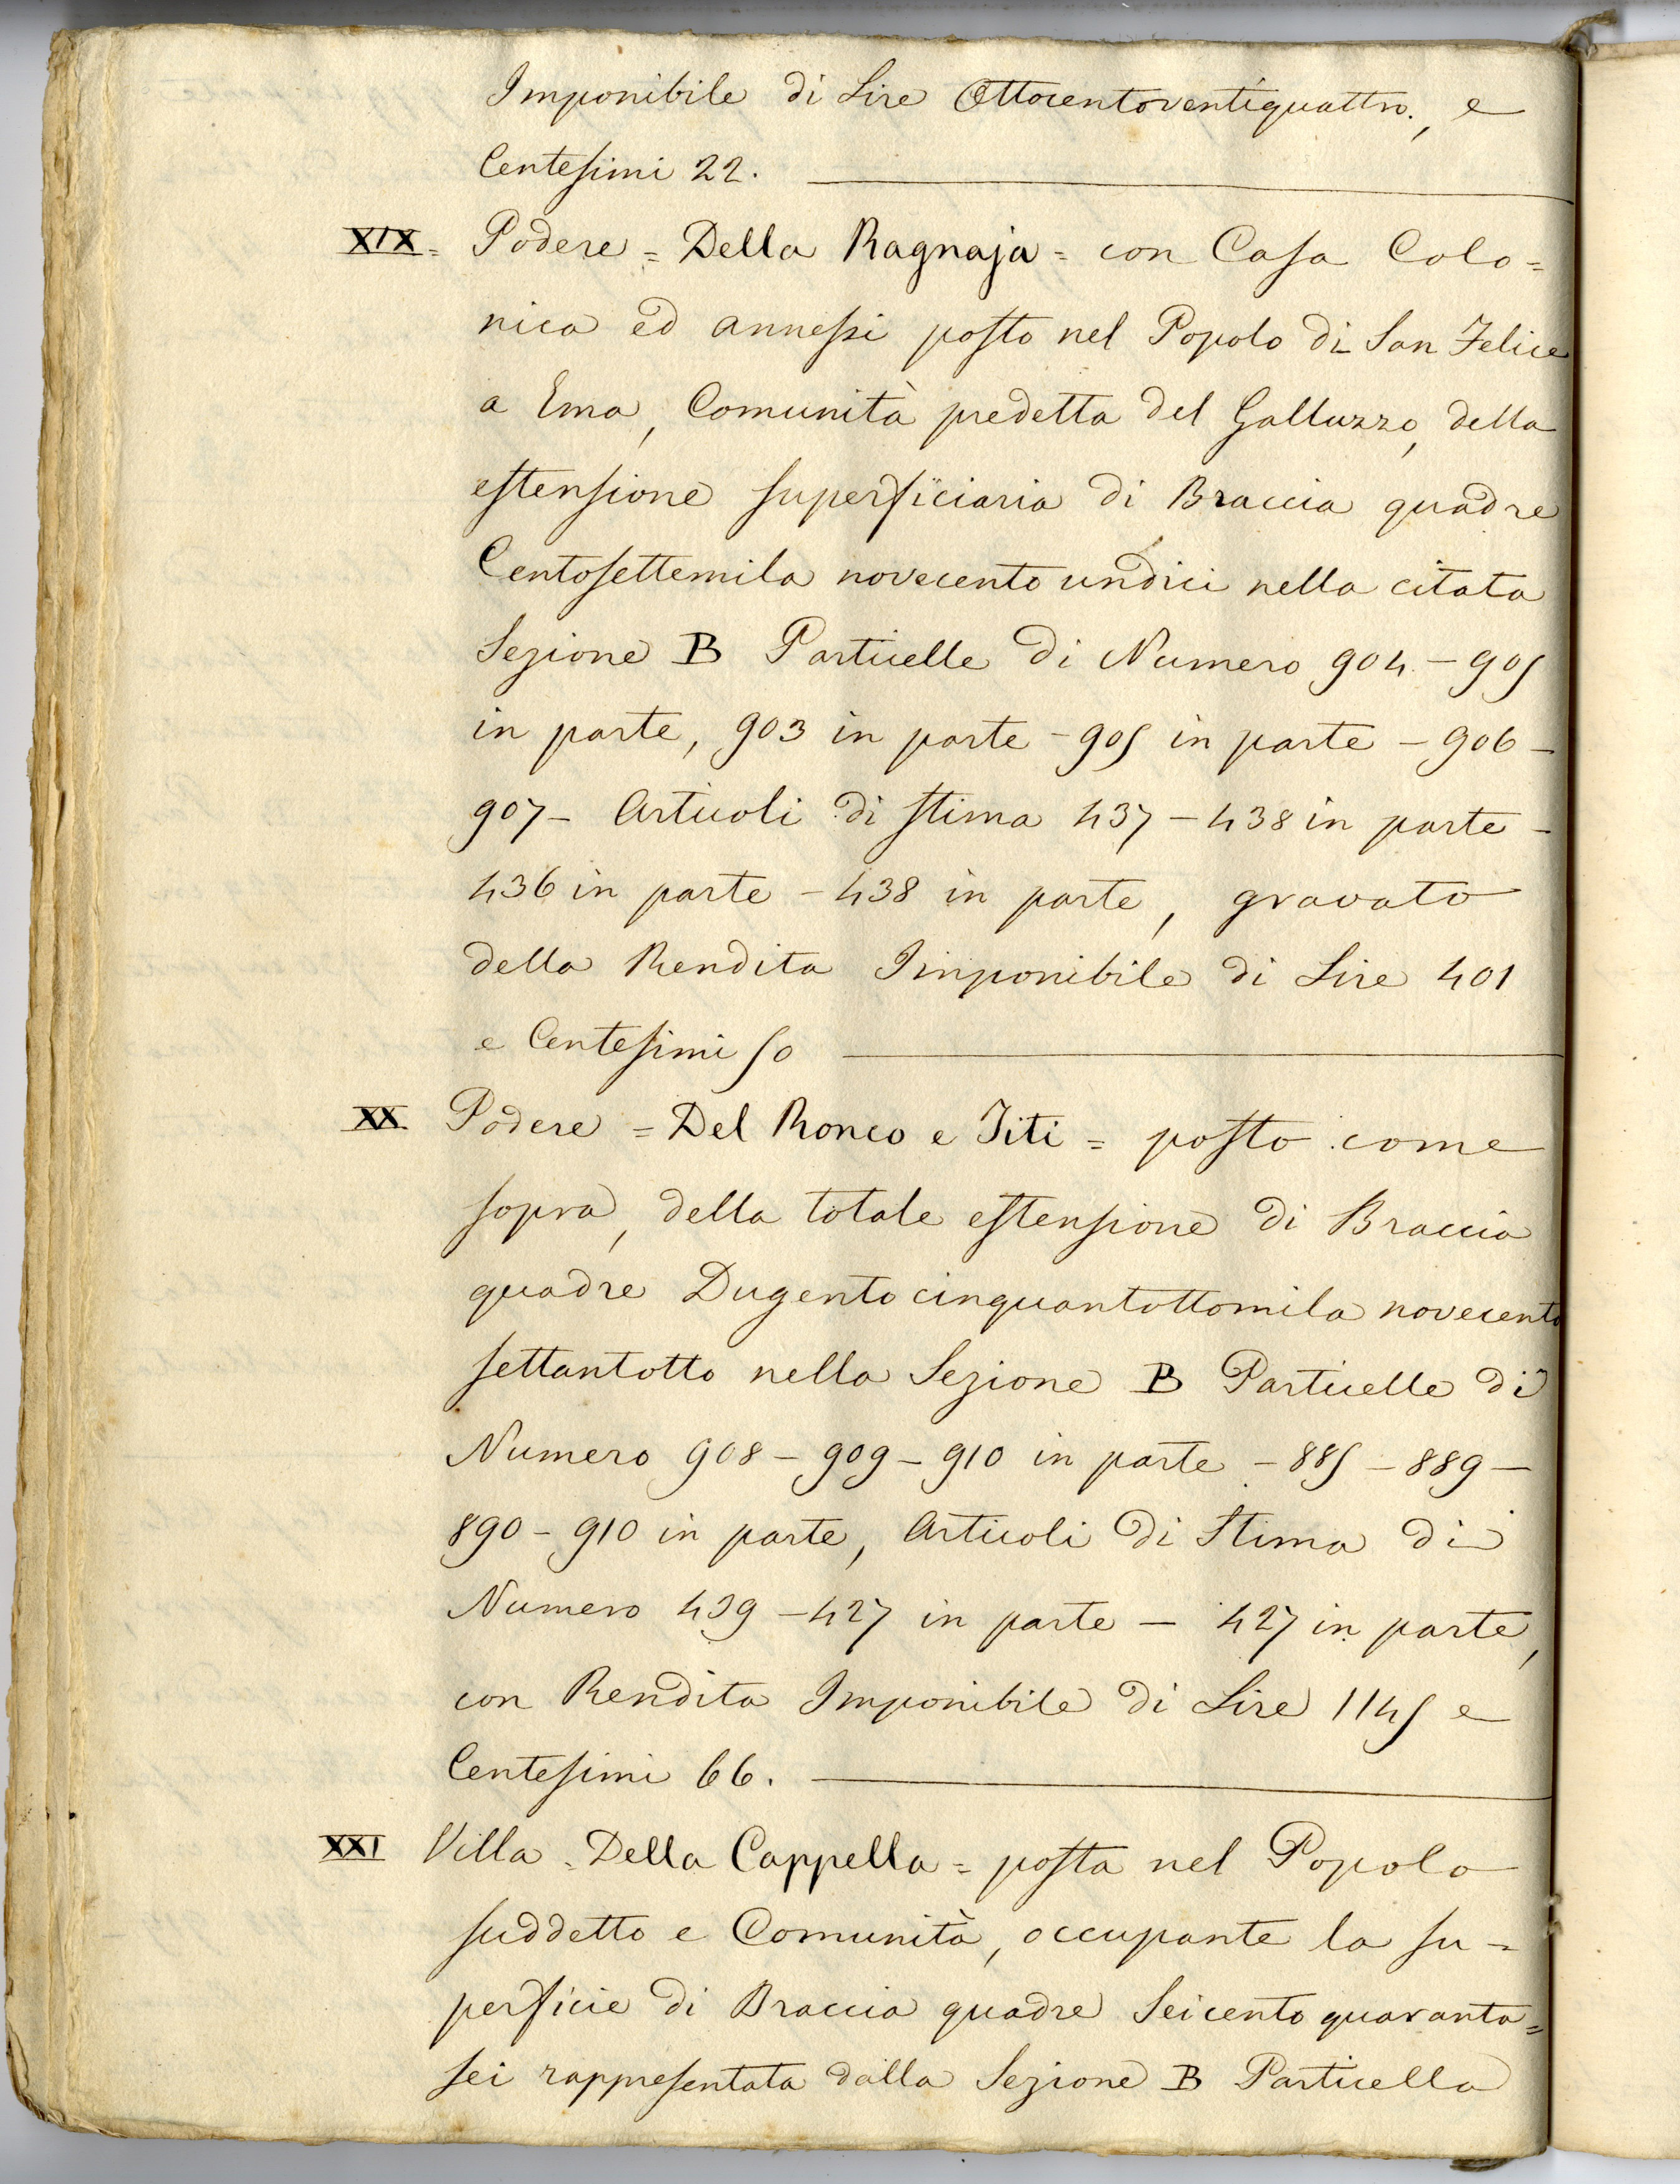 Imponibile di Lire Ottocentoventiquattro., e
Centesimi 22.
XIX = Podere = Della Ragnaja = con Casa Colo=
nica ed annessi posto nel Popolo di San Felice
a Ema, Comunità predetta del Galluzzo, della
estensione superficiaria di Braccia quadre
Centosettemila novecento undici nella citata
Sezione B Particelle di Numero 904 - 905
in parte, 903 in parte - 905 in parte - 906 -
907 - Articoli di stima 437 - 438 in parte -
436 in parte - 438 in parte, gravato
della Rendita Imponibile di Lire 401
e Centesimi 50
XX Podere = Del Ronco e Titi = posto come
sopra, della totale estensione di Braccia
quadre Dugento cinquantottomila novecento
settantotto nella Sezione B Particelle di
Numero 908 - 909 - 910 in parte - 885 - 889 -
890 - 910 in parte, Articoli di Stima di
Numero 439 - 427 in parte - 427 in parte,
con Rendita Imponibile di Lire 1145 e
Centesimi 66.
XXI Villa = Della Cappella = posta nel Popolo
suddetto e Comunità, occupante la su=
perficie di Braccia quadre Seicento quaranta=
sei rappresentata dalla Sezione B Particella